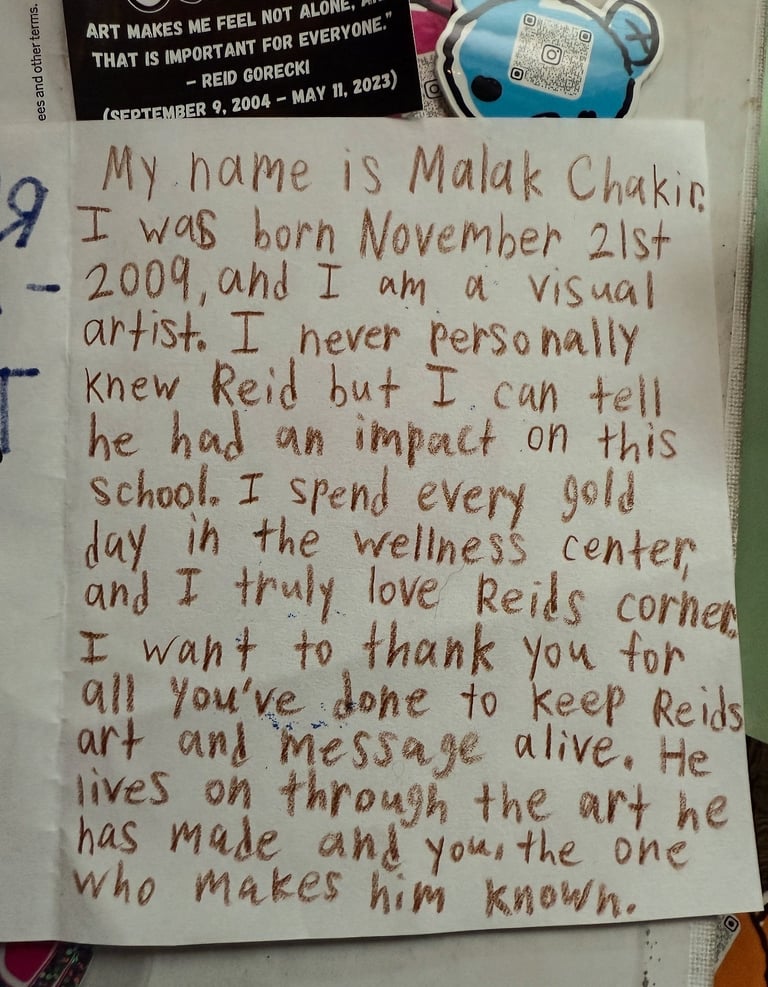 ees and other terms.
ART MAKES ME FEEL NOT ALONE,
THAT IS IMPORTANT FOR EVERYONE."
– REID GORECKI
(SEPTEMBER 9, 2004 – MAY 11, 2023)
My name is Malak Chakir.
I was born November 21st
2009, and I am a visual
artist. I never personally
knew Reid but I can tell
he had an impact on this
school. I spend every gold
day in the wellness center,
and I truly love Reids corner.
I want to thank you for
all you've done to keep Reids
art and message alive. He
lives on through the art he
has made and you, the one
who makes him known.